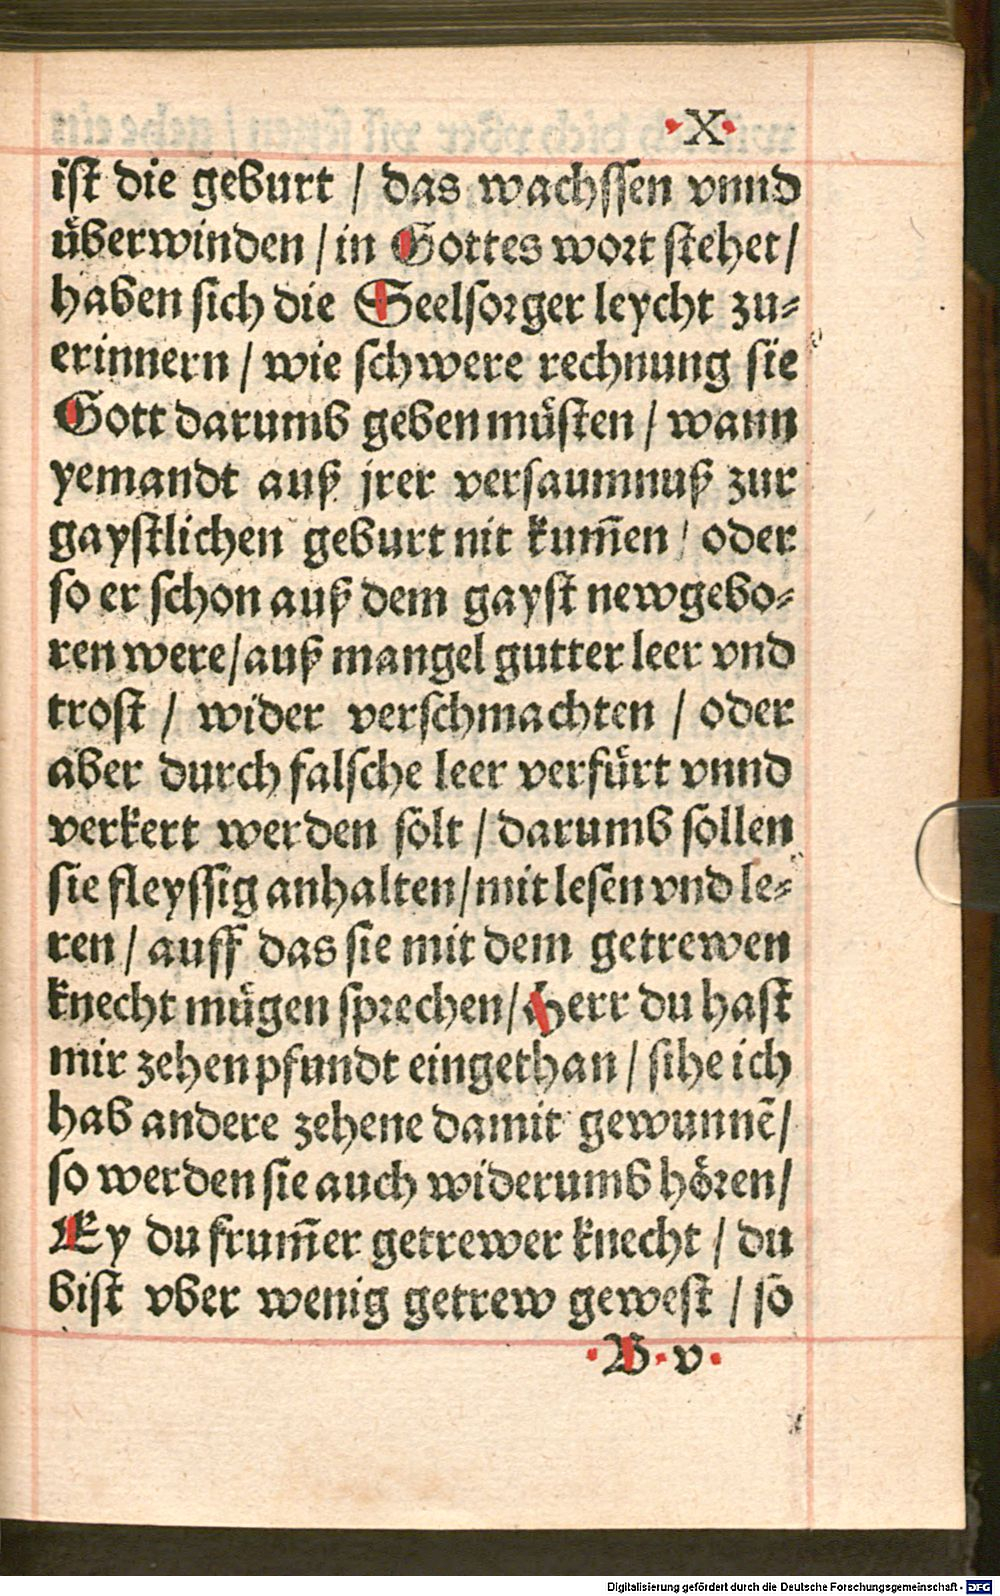 X
ist die geburt / das wachssen vnnd
überwinden / in Gottes wort stehet /
haben sich die Seelsorger leycht zu-
erinnern / wie schwere rechnung sie
Gott darumb geben müsten / wann
yemandt auß jrer versaumnuß zur
gaystlichen geburt nit kum̃en / oder
so er schon auß dem gayst newgebo-
ren were / auß mangel gutter leer vnd
trost / wider verschmachten / oder
aber durch falsche leer verfürt vnnd
verkert werden solt / darumb sollen
sie fleyssig anhalten / mit lesen vnd le-
ren / auff das sie mit dem getrewen
knecht mügen sprechen / Herr du hast
mir zehen pfundt eingethan / sihe ich
hab andere zehene damit gewunnẽ /
so werden sie auch widerumb hören /
Ey du frum̃er getrewer knecht / du
bist vber wenig getrew gewest / so
B v
Digitalisierung gefördert durch die Deutsche Forschungsgemeinschaft - DFG